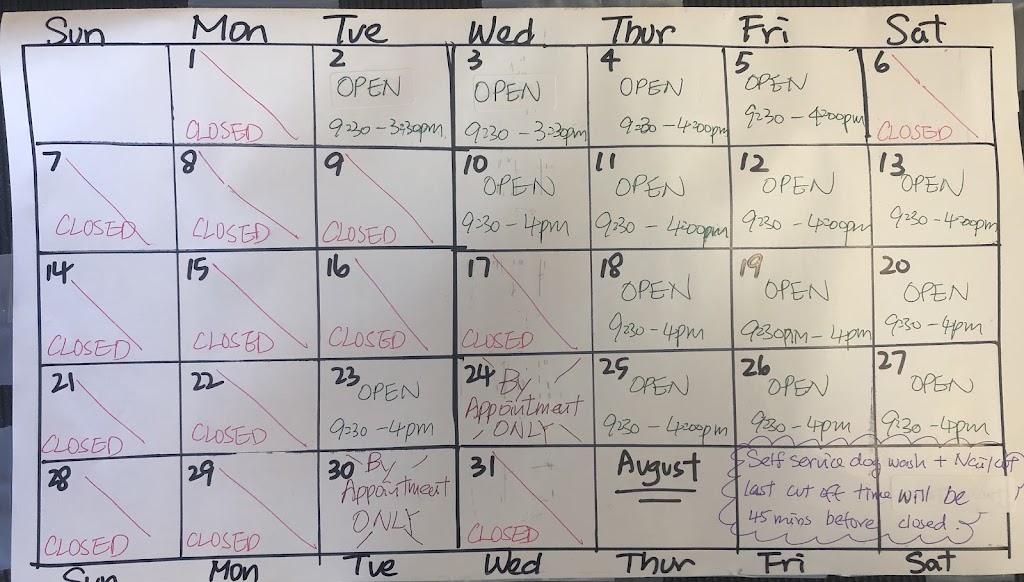 Sun Mon Tue Wed Thur Fri Sat
1 2 3 4 5 6
OPEN OPEN OPEN OPEN
CLOSED 9:30 - 3:30pm 9:30 - 3:30pm 9:30 - 4:00pm 9:30 - 4:00pm CLOSED
7 8 9 10 11 12 13
OPEN OPEN OPEN OPEN
CLOSED CLOSED CLOSED 9:30 - 4pm 9:30 - 4:00pm 9:30 - 4:00pm 9:30 - 4:00pm
14 15 16 17 18 19 20
OPEN OPEN OPEN
CLOSED CLOSED CLOSED CLOSED 9:30 - 4pm 9:30pm - 4pm 9:30 - 4pm
21 22 23 24 25 26 27
OPEN By OPEN OPEN OPEN
Appointment
CLOSED CLOSED 9:30 - 4pm ONLY 9:30 - 4:00pm 9:30 - 4pm 9:30 - 4pm
28 29 30 31 August
By Self service dog wash + Nail cut
Appointment last cut off time will be
ONLY 45 mins before closed.
CLOSED CLOSED CLOSED
Sun Mon Tue Wed Thur Fri Sat